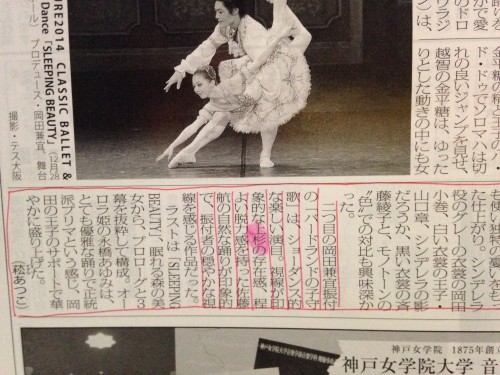 ド・ドゥでソロマハは切
れの良いジャンプを見せ、
越智の金平糖は、ゆった
りとした動きの中にも女
URE2014 CLASSIC BALLET &
Dance「SLEEPING BEAUTY」(12月28
プロデュース・岡田兼宜、舞台
撮影・テス大阪
た仕上がり。シンデレラ
役のグレーの衣裳の岡田
小巻、白い衣裳の王子・
山口章、シンデレラの影
だろうか、黒い衣裳の斎
藤綾子と、モノトーンの
“色”での対比も興味深か
った。
二つ目の岡田兼宜振付
の「バードランドの子守
歌」は、ショーダンス的
な楽しい演目。視線が印
象的な上杉の存在感、程
よい脱力感を見せた佐藤
航の自然な踊りが印象的
で、振付者の穏やかな視
線を感じる作品だった。
ラストは「SLEEPING
BEAUTY」、眠れる森の美
女から、プロローグと3
幕を抜粋して構成。オー
ロラ姫の永橋あゆみは、
とても優雅な踊りで正統
派プリマという感じ、岡
田の王子のサポートで華
やかに盛り上げた。
(菘あつこ)
神戸女学院 1875年創
神戸女学院大学 音